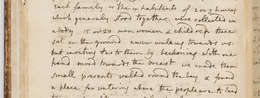 each family or the inhabitants of 2 or 3 houses
which generally stood together were collected in
a body 15 or 20 men women & children these
sat on the ground never walking towards us
but inviting us to them by beckoning with one
hand moved towards the breast we made them
small presents walked round the bay & found
a place for watering where the people are to land